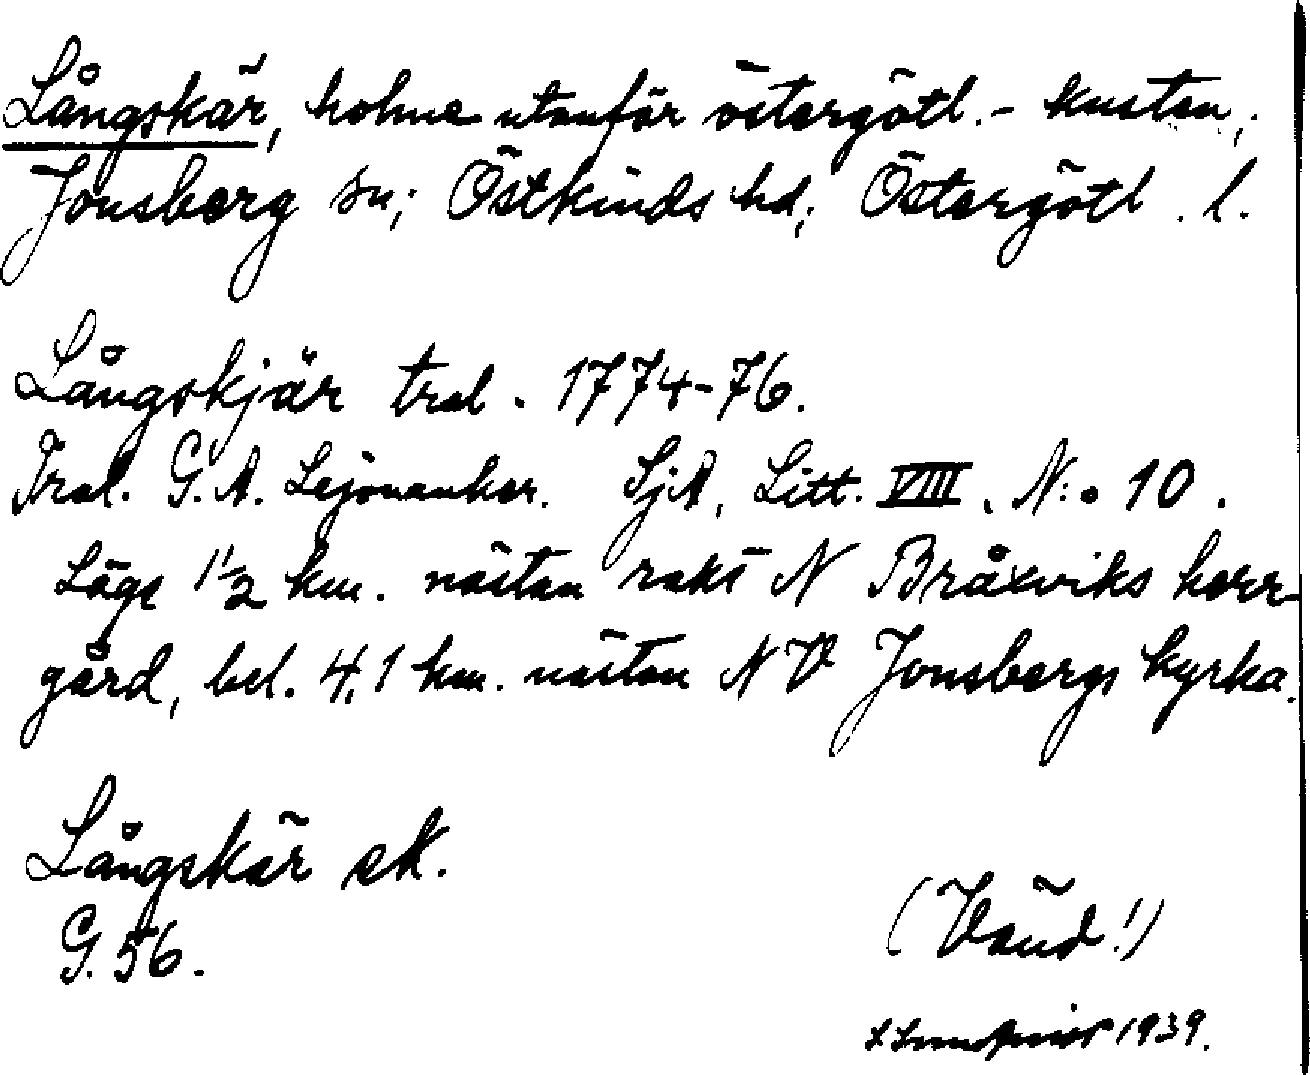 Långskär, holme utanför östergötl.- kusten,
Jonsberg sn; Östkinds hd; Östergötl. l.
Långskjär tral. 1774-76.
Tral. G. A. Lejonanker. SjA, Litt. VIII, N:o 10.
Läge 1 1/2 km. nästan rakt N Bråxviks herr-
gård, bel. 4,1 km. nästan NV Jonsbergs kyrka.
Långskär ek.
G. 56.
(Vänd!)
1939.